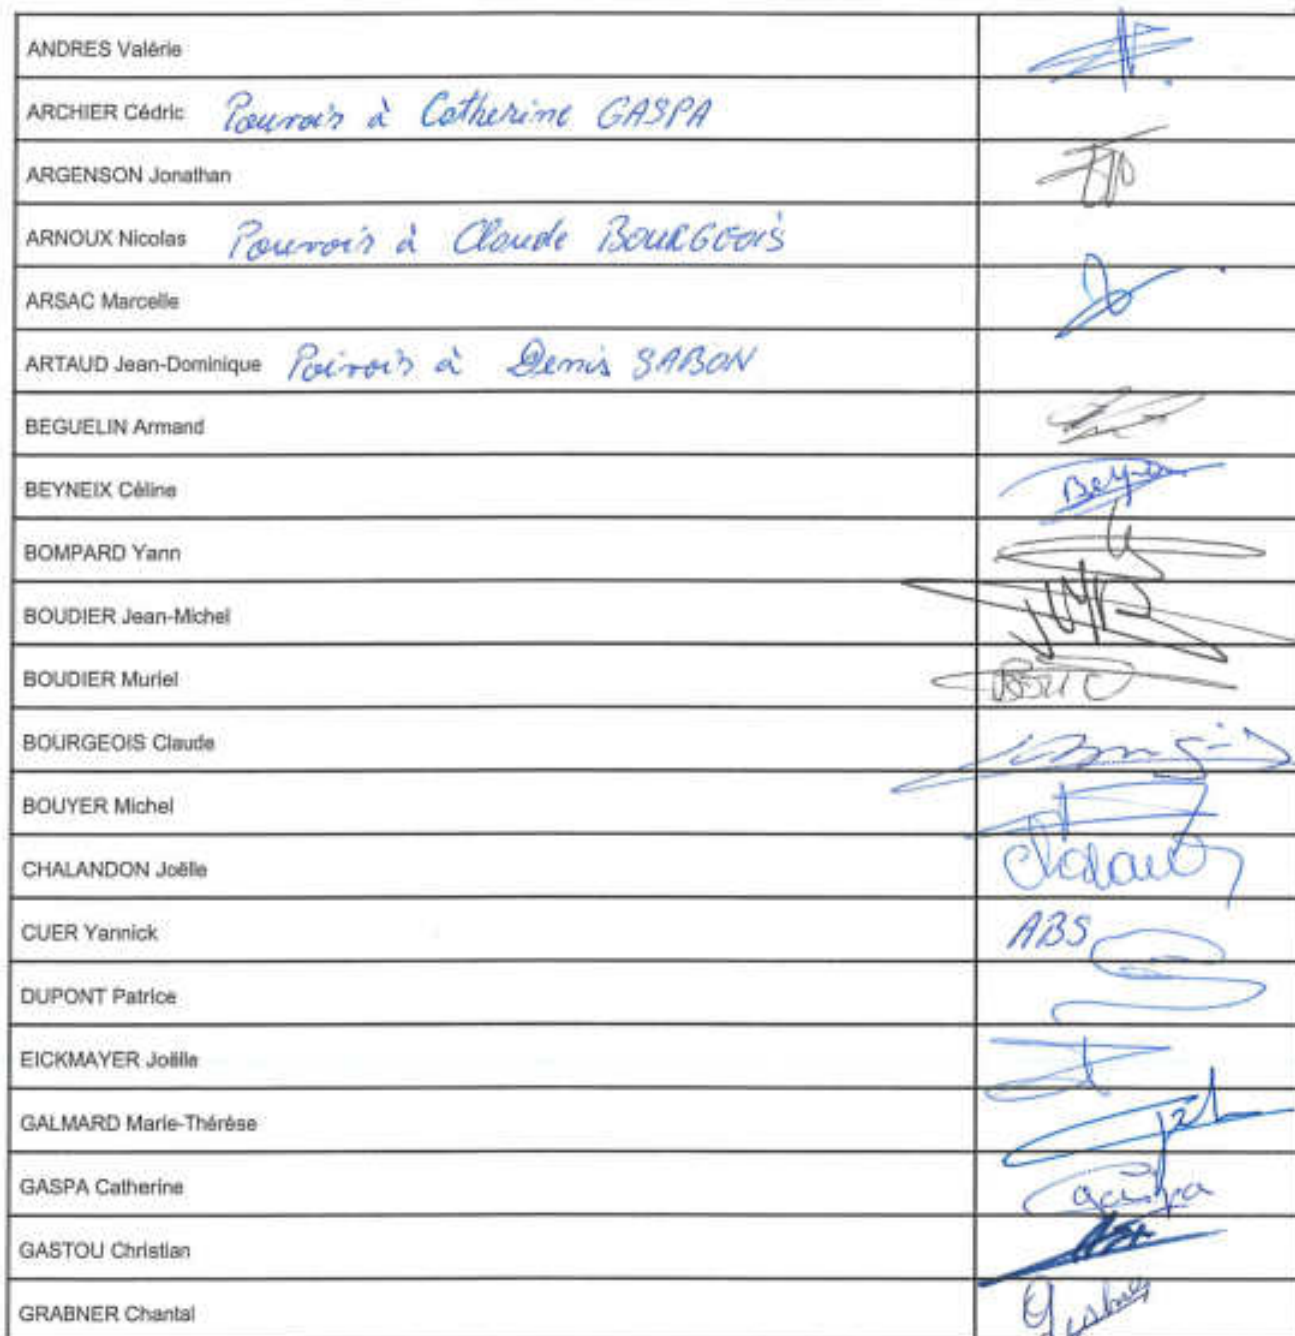 ANDRES Valérie
ARCHIER Cédric Pouvoir à Catherine GASPA
ARGENSON Jonathan
ARNOUX Nicolas Pouvoir à Claude BOURGEOIS
ARSAC Marcelle
ARTAUD Jean-Dominique Poivoir à Denis SABON
BEGUELIN Armand
BEYNEIX Céline
BOMPARD Yann
BOUDIER Jean-Michel
BOUDIER Muriel
BOURGEOIS Claude
BOUYER Michel
CHALANDON Joëlle
CUER Yannick ABS
DUPONT Patrice
EICKMAYER Joëlle
GALMARD Marie-Thérèse
GASPA Catherine Gaspa
GASTOU Christian
GRABNER Chantal